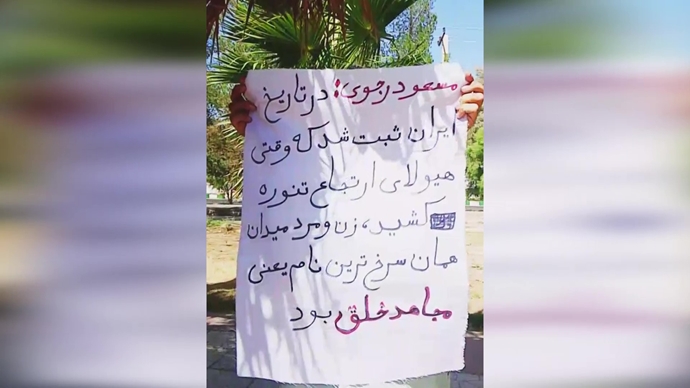 مسعود رجوی: در تاریخ
ایران ثبت شد که وقتی
هیولای ارتجاع تنوره
کشید، زن و مرد میدان
همان سرخ ترین نام یعنی
مجاهد خلق بود